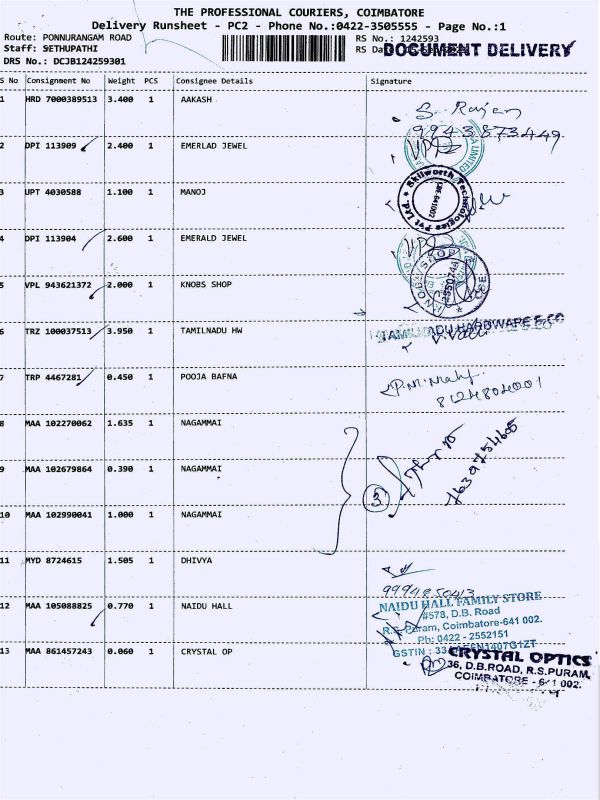 THE PROFESSIONAL COURIERS, COIMBATORE
Delivery Runsheet - PC2 - Phone No.:0422-3505555 - Page No.:1
Route: PONNURANGAM ROAD
RS No.: 1242593
Staff: SETHUPATHI
DOCUMENT DELIVERY
DRS No.: DCJB124259301
S No Consignment No Weight PCS Consignee Details Signature
1 HRD 7000389513 3.400 1 AAKASH
S. Rajan
9943873449
2 DPI 113909 2.400 1 EMERLAD JEWEL
3 UPT 4030588 1.100 1 MANOJ
Skilworth Technologies Pvt Ltd.
4 DPI 113904 2.600 1 EMERALD JEWEL
5 VPL 943621372 2.000 1 KNOBS SHOP
2550744
6 TRZ 100037513 3.950 1 TAMILNADU HW
TAMILNADU HARDWARE & CO
7 TRP 4467281 0.450 1 POOJA BAFNA
8124804001
8 MAA 102270062 1.635 1 NAGAMMAI
9 MAA 102679864 0.390 1 NAGAMMAI
3
10 MAA 102990041 1.000 1 NAGAMMAI
11 MYD 8724615 1.505 1 DHIVYA
9994850413
12 MAA 105088825 0.770 1 NAIDU HALL
NAIDU HALL FAMILY STORE
#578, D.B. Road
R.S. Puram, Coimbatore-641 002.
Ph: 0422 - 2552151
13 MAA 861457243 0.060 1 CRYSTAL OP
CRYSTAL OPTICS
36, D.B.ROAD, R.S.PURAM,
COIMBATORE - 641 002.